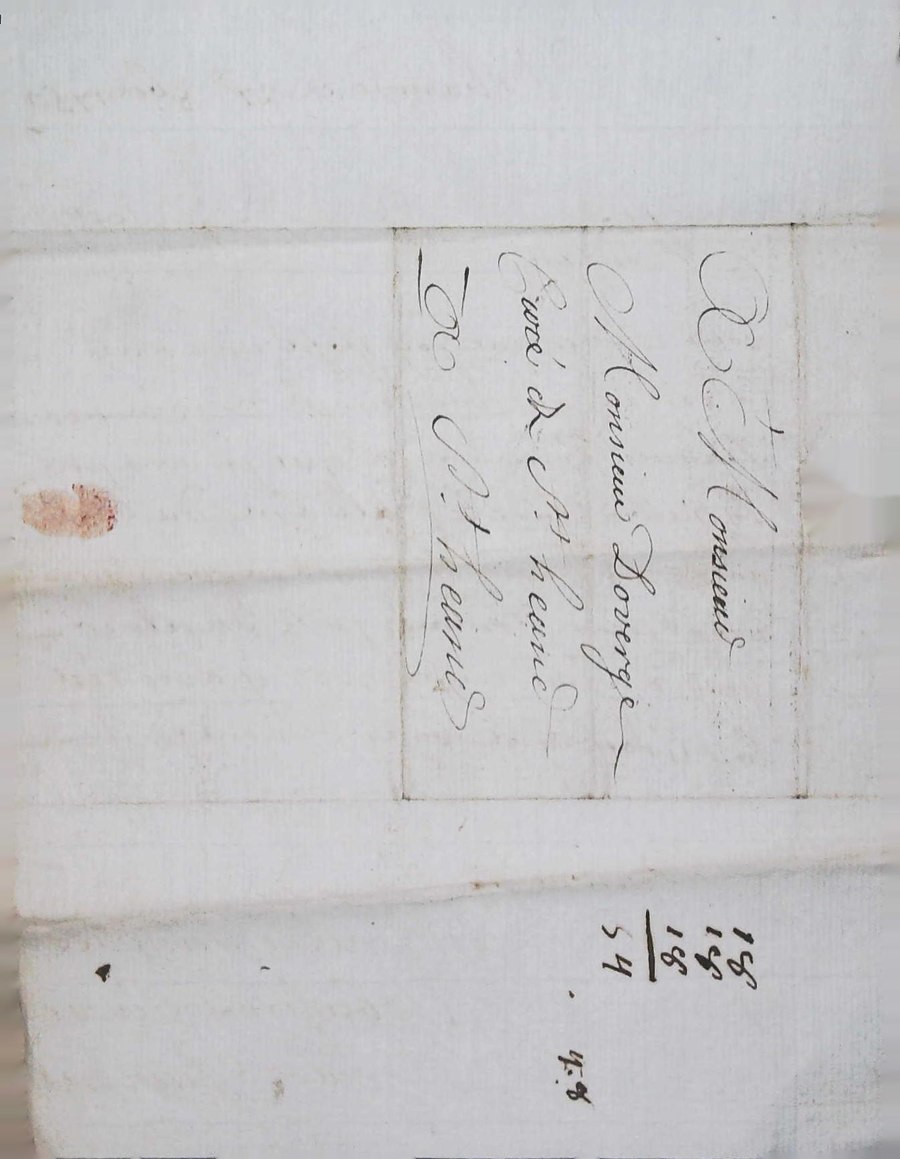 A Monsieur
Monsieur Doverge
Curé de St heand
A St heand
18
18
18
54